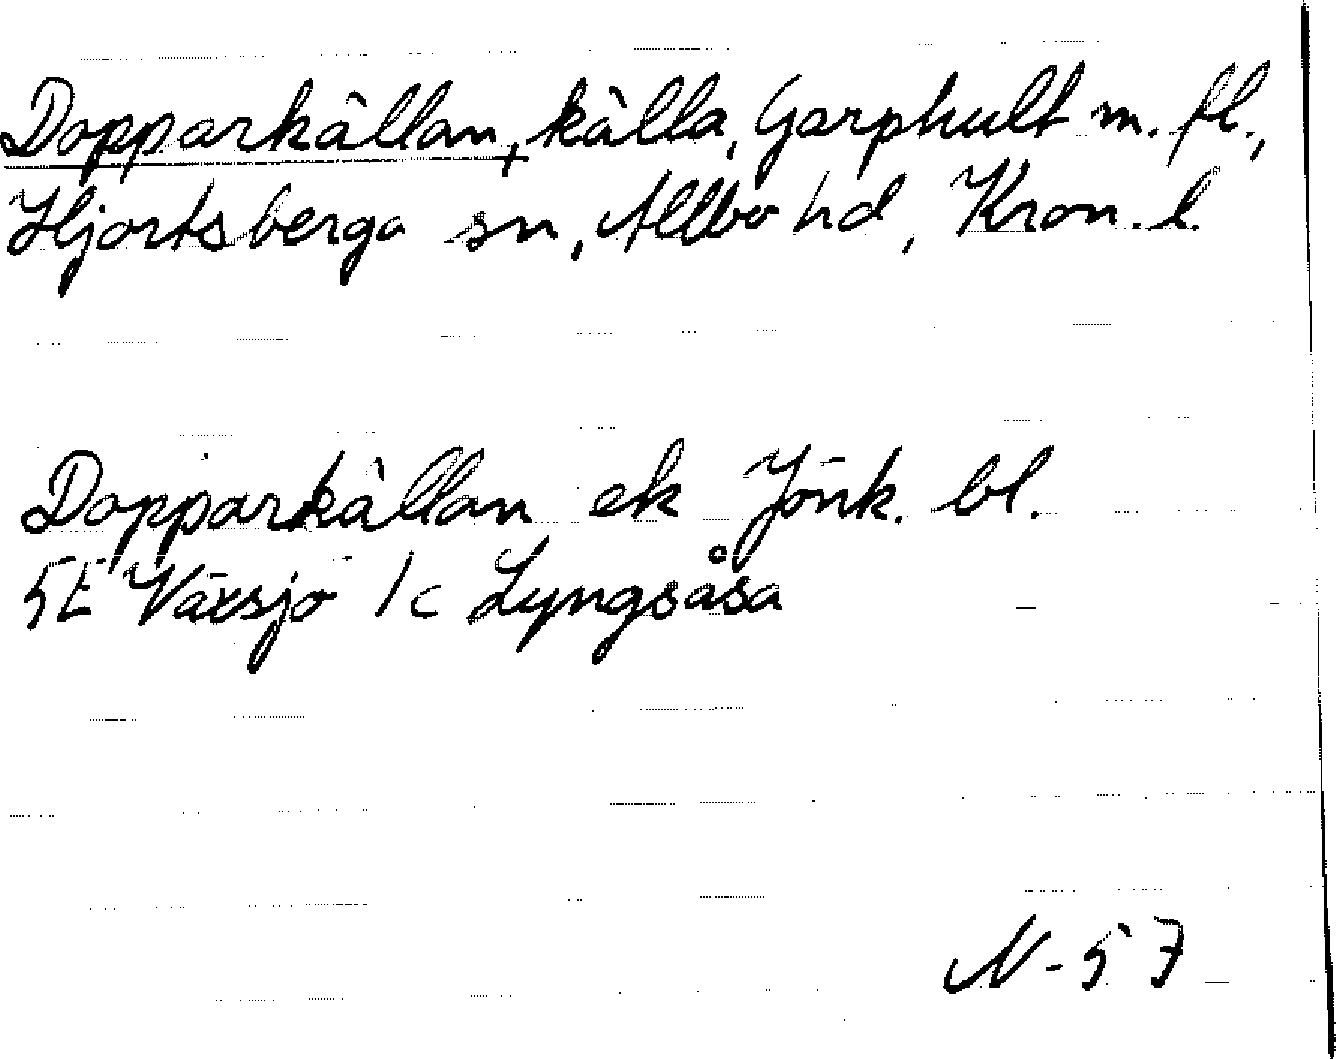 Dopparkällan, källa, Garphult m. fl.,
Hjortsberga sn, Allbo hd, Kron. l.
Dopparkällan ek Jönk. bl.
5E Växsjö 1c Lyngsåsa
N-57